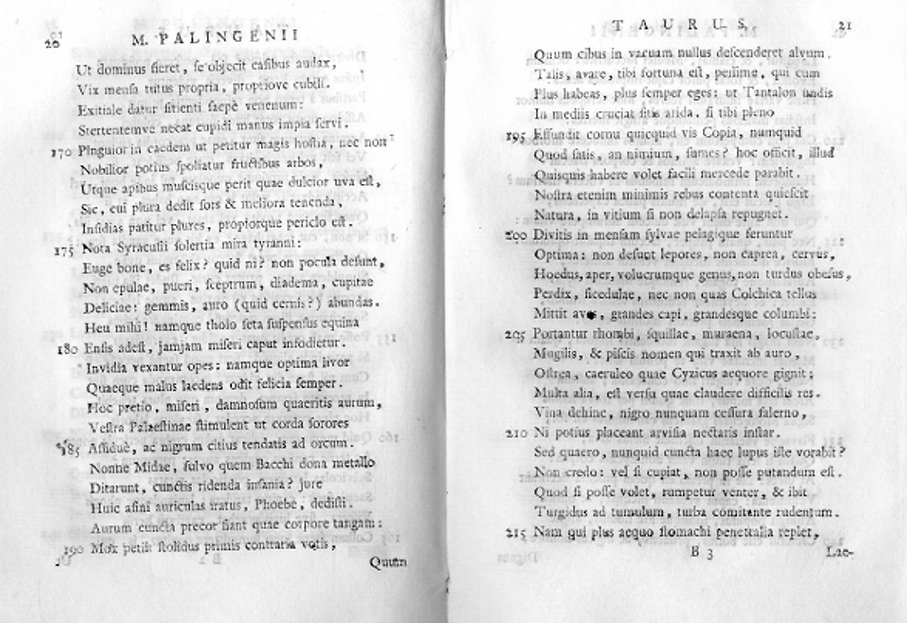 20 M. PALINGENII
Ut dominus fieret, se objecit casibus audax,
Vix mensa tutus propria, propriove cubili.
Exitiale datur sitienti saepè venenum:
Stertentemve necat cupidi manus impia servi.
170 Pinguior in caedem ut petitur magis hostia, nec non
Nobilior potius spoliatur fructibus arbos,
Utque apibus muscisque perit quae dulcior uva est,
Sic, cui plura dedit sors & meliora tenenda,
Insidias patitur plures, propiorque periclo est.
175 Nota Syracusii solertia mira tyranni:
Euge bone, es felix? quid ni? non pocula desunt,
Non epulae, pueri, sceptrum, diadema, cupitae
Deliciae: gemmis, auro (quid cernis?) abundas.
Heu mihi! namque tholo seta suspensus equina
180 Ensis adest, jamjam miseri caput infodietur.
Invidia vexantur opes: namque optima livor
Quaeque malus laedens odit felicia semper.
Hoc pretio, miseri, damnosum quaeritis aurum,
Vestra Palaestinae stimulent ut corda sorores
185 Assiduè, ac nigrum citius tendatis ad orcum.
Nonne Midae, fulvo quem Bacchi dona metallo
Ditarunt, cunctis ridenda insania? jure
Huic asini auriculas iratus, Phoebe, dedisti.
Aurum cuncta precor fiant quae corpore tangam:
190 Mox petiit stolidus primis contraria votis,
Quum
TAURUS. 21
Quum cibus in vacuam nullus descenderet alvum.
Talis, avare, tibi fortuna est, pessime, qui cum
Plus habeas, plus semper eges: ut Tantalon undis
In mediis cruciat sitis arida. si tibi pleno
195 Effundit cornu quicquid vis Copia, numquid
Quod satis, an nimium, sumes? hoc officit, illud
Quisquis habere volet facili mercede parabit.
Nostra etenim minimis rebus contenta quiescit
Natura, in vitium si non delapsa repugnet.
200 Divitis in mensam sylvae pelagique feruntur
Optima: non desunt lepores, non caprea, cervus,
Hoedus, aper, volucrumque genus, non turdus obesus,
Perdix, ficedulae, nec non quas Colchica tellus
Mittit aves, grandes capi, grandesque columbi:
205 Portantur rhombi, squillae, muraena, locustae,
Mugilis, & piscis nomen qui traxit ab auro,
Ostrea, caeruleo quae Cyzicus aequore gignit:
Multa alia, est versu quae claudere difficilis res.
Vina dehinc, nigro nunquam cessura falerno,
210 Ni potius placeant arvisia nectaris instar.
Sed quaero, nunquid cuncta haec lupus iste vorabit?
Non credo: vel si cupiat, non posse putandum est.
Quod si posse volet, rumpetur venter, & ibit
Turgidus ad tumulum, turba comitante rudentum.
215 Nam qui plus aequo stomachi penetralia replet,
B 3 Lae-